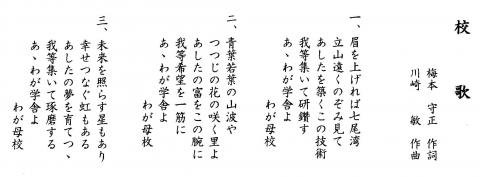 校歌
梅本 守正 作詞
川崎 敏 作曲
一、眉を上げれば七尾湾
立山遠くのぞみ見て
あしたを築くこの技術
我等集いて研鑽す
あゝわが学舎よ
わが母校
二、青葉若葉の山波や
つつじの花の咲く里よ
あしたの富をこの腕に
我等希望を一筋に
あゝわが学舎よ
わが母校
三、未来を照らす星もあり
幸せつなぐ虹もある
あしたの夢を育てつゝ
我等集いて琢磨する
あゝわが学舎よ
わが母校